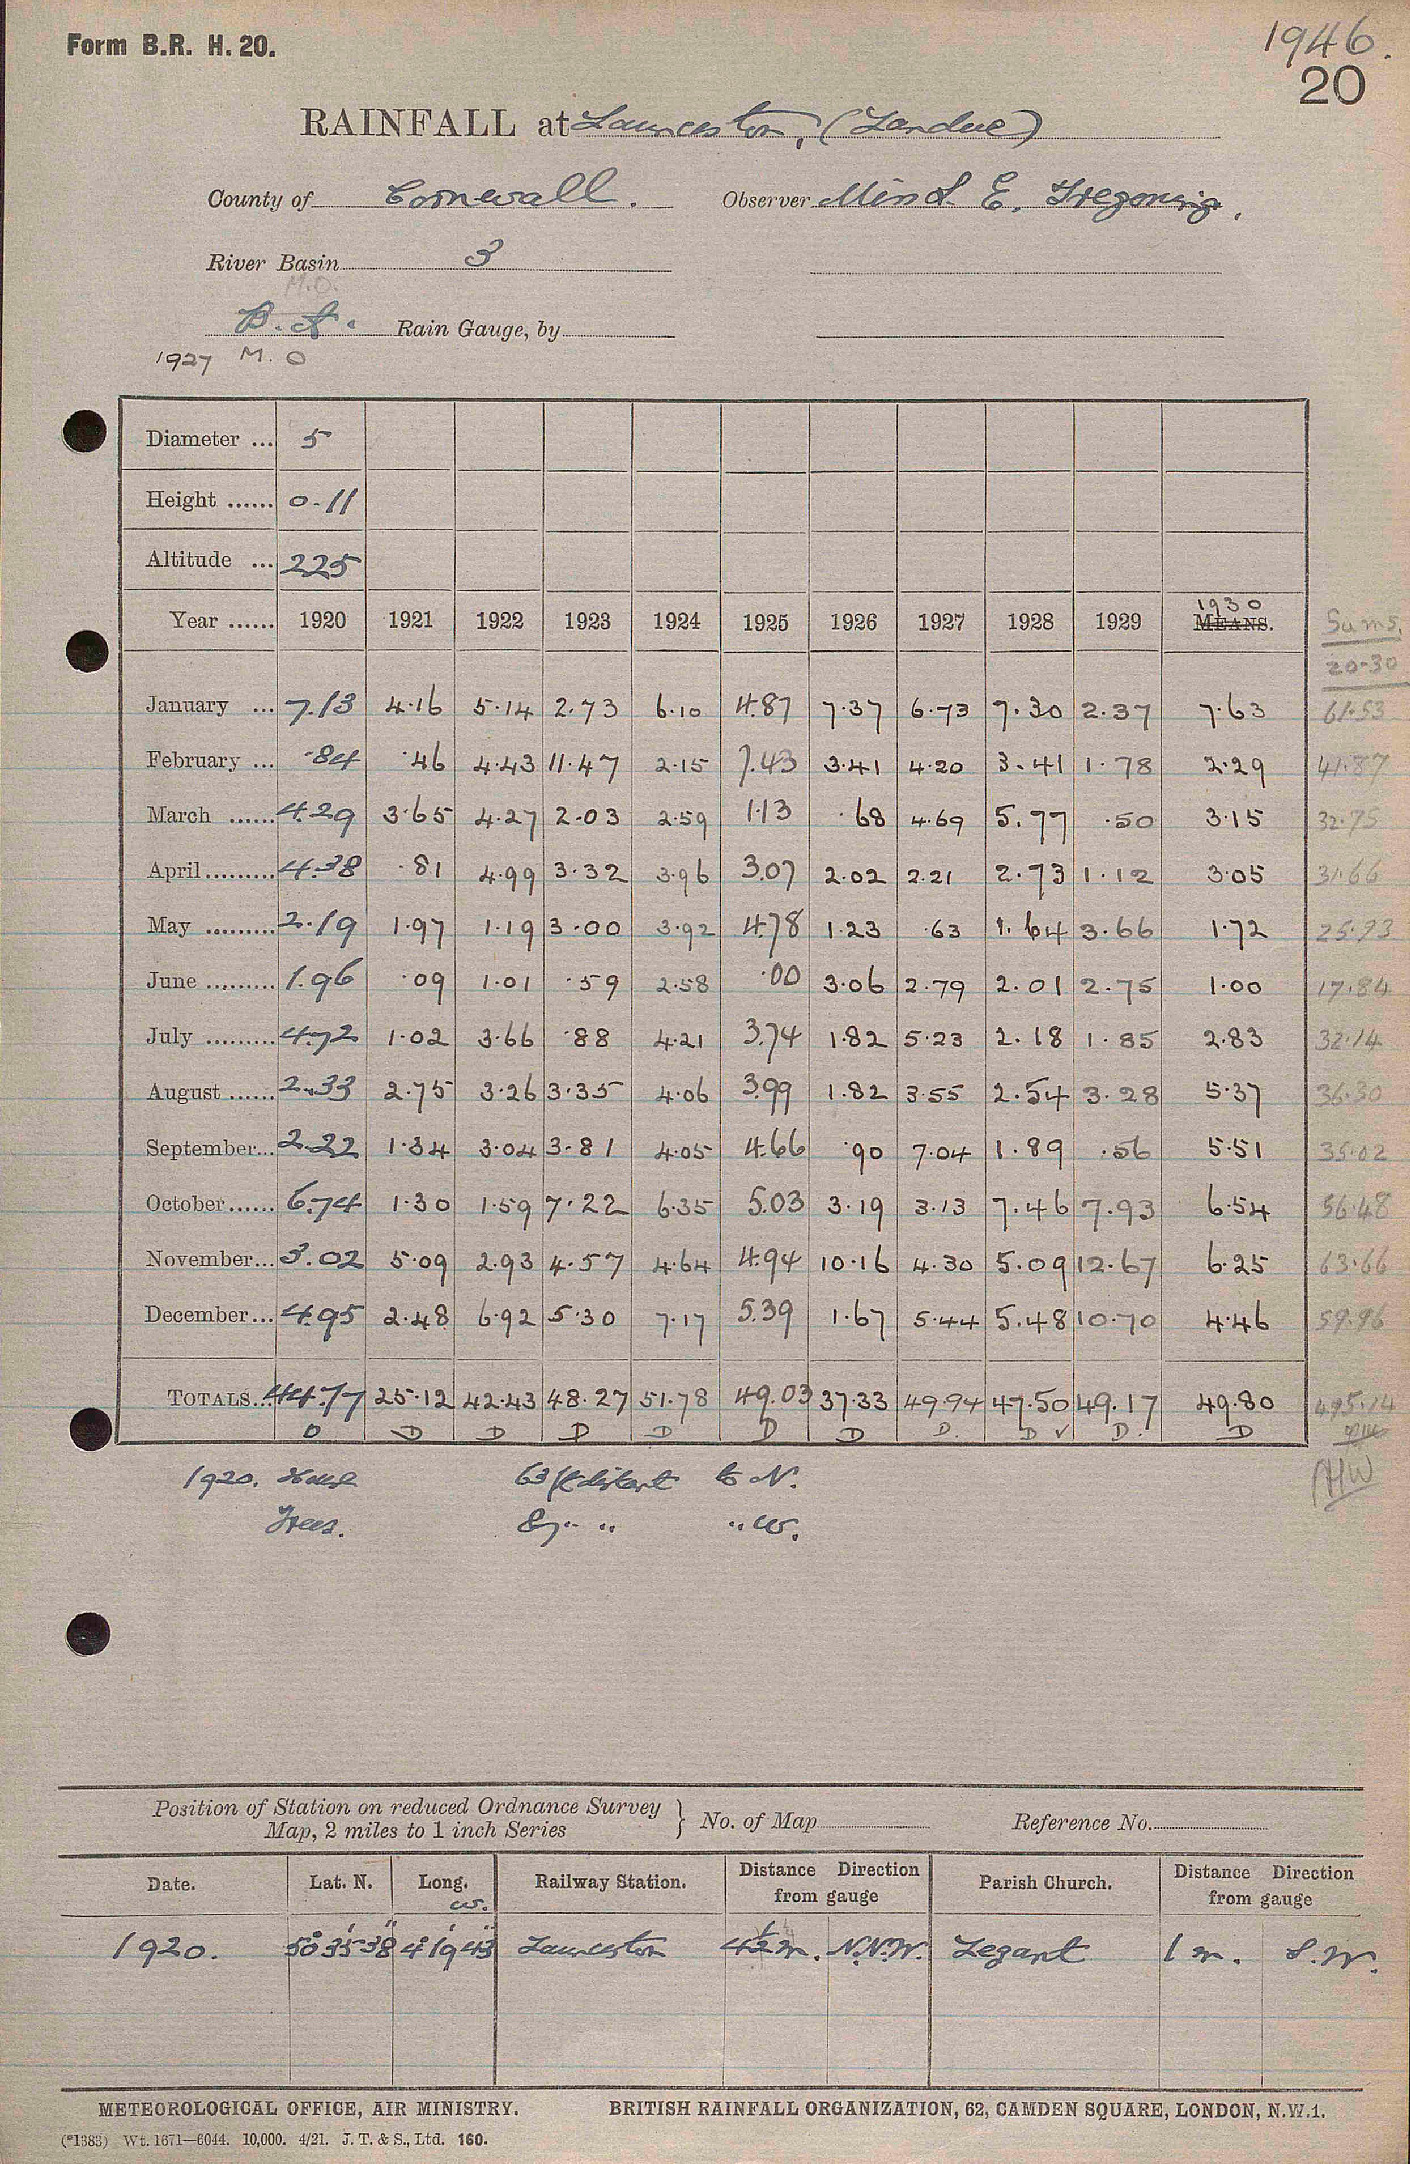 Form B.R. H. 20.
1946.
20
RAINFALL at Launceston, (Landue)
County of Cornwall. Observer Miss L. E. Tregoning.
River Basin 3
M.O.
B.A. Rain Gauge, by
1927 M.O
Diameter ... 5
Height ...... 0-11
Altitude ... 225
Year ...... 1920 1921 1922 1923 1924 1925 1926 1927 1928 1929 1930 MEANS. Sums.
20-30
January ... 7.13 4.16 5.14 2.73 6.10 4.87 7.37 6.73 7.30 2.37 7.63 61.53
February ... .84 .46 4.43 11.47 2.15 7.43 3.41 4.20 3.41 1.78 2.29 41.87
March ...... 4.29 3.65 4.27 2.03 2.59 1.13 .68 4.69 5.77 .50 3.15 32.75
April ......... 4.38 .81 4.99 3.32 3.96 3.07 2.02 2.21 2.73 1.12 3.05 31.66
May ......... 2.19 1.97 1.19 3.00 3.92 4.78 1.23 .63 1.64 3.66 1.72 25.93
June ......... 1.96 .09 1.01 .59 2.58 .00 3.06 2.79 2.01 2.75 1.00 17.84
July ......... 4.72 1.02 3.66 .88 4.21 3.74 1.82 5.23 2.18 1.85 2.83 32.14
August ...... 2.33 2.75 3.26 3.35 4.06 3.99 1.82 3.55 2.54 3.28 5.37 36.30
September... 2.22 1.34 3.04 3.81 4.05 4.66 .90 7.04 1.89 .56 5.51 35.02
October...... 6.74 1.30 1.59 7.22 6.35 5.03 3.19 3.13 7.46 7.93 6.54 56.48
November... 3.02 5.09 2.93 4.57 4.64 4.94 10.16 4.30 5.09 12.67 6.25 63.66
December... 4.95 2.48 6.92 5.30 7.17 5.39 1.67 5.44 5.48 10.70 4.46 59.96
TOTALS... 44.77 25.12 42.43 48.27 51.78 49.03 37.33 49.94 47.50 49.17 49.80 495.14
D D D D D D D D. D ✓ D. D
HW
1920. House 63 ft distant to N.
Trees. " " W.
Position of Station on reduced Ordnance Survey
Map, 2 miles to 1 inch Series } No. of Map Reference No.
Date. Lat. N. Long. W. Railway Station. Distance Direction from gauge Parish Church. Distance Direction from gauge
1920. 50° 35' 38" 4° 19' 43" Launceston 4½ m. N.N.W. Lezant 1 m. S.W.
METEOROLOGICAL OFFICE, AIR MINISTRY. BRITISH RAINFALL ORGANIZATION, 62, CAMDEN SQUARE, LONDON, N.W.1.
(*1383) Wt. 1671—6044. 10,000. 4/21. J. T. & S., Ltd. 160.